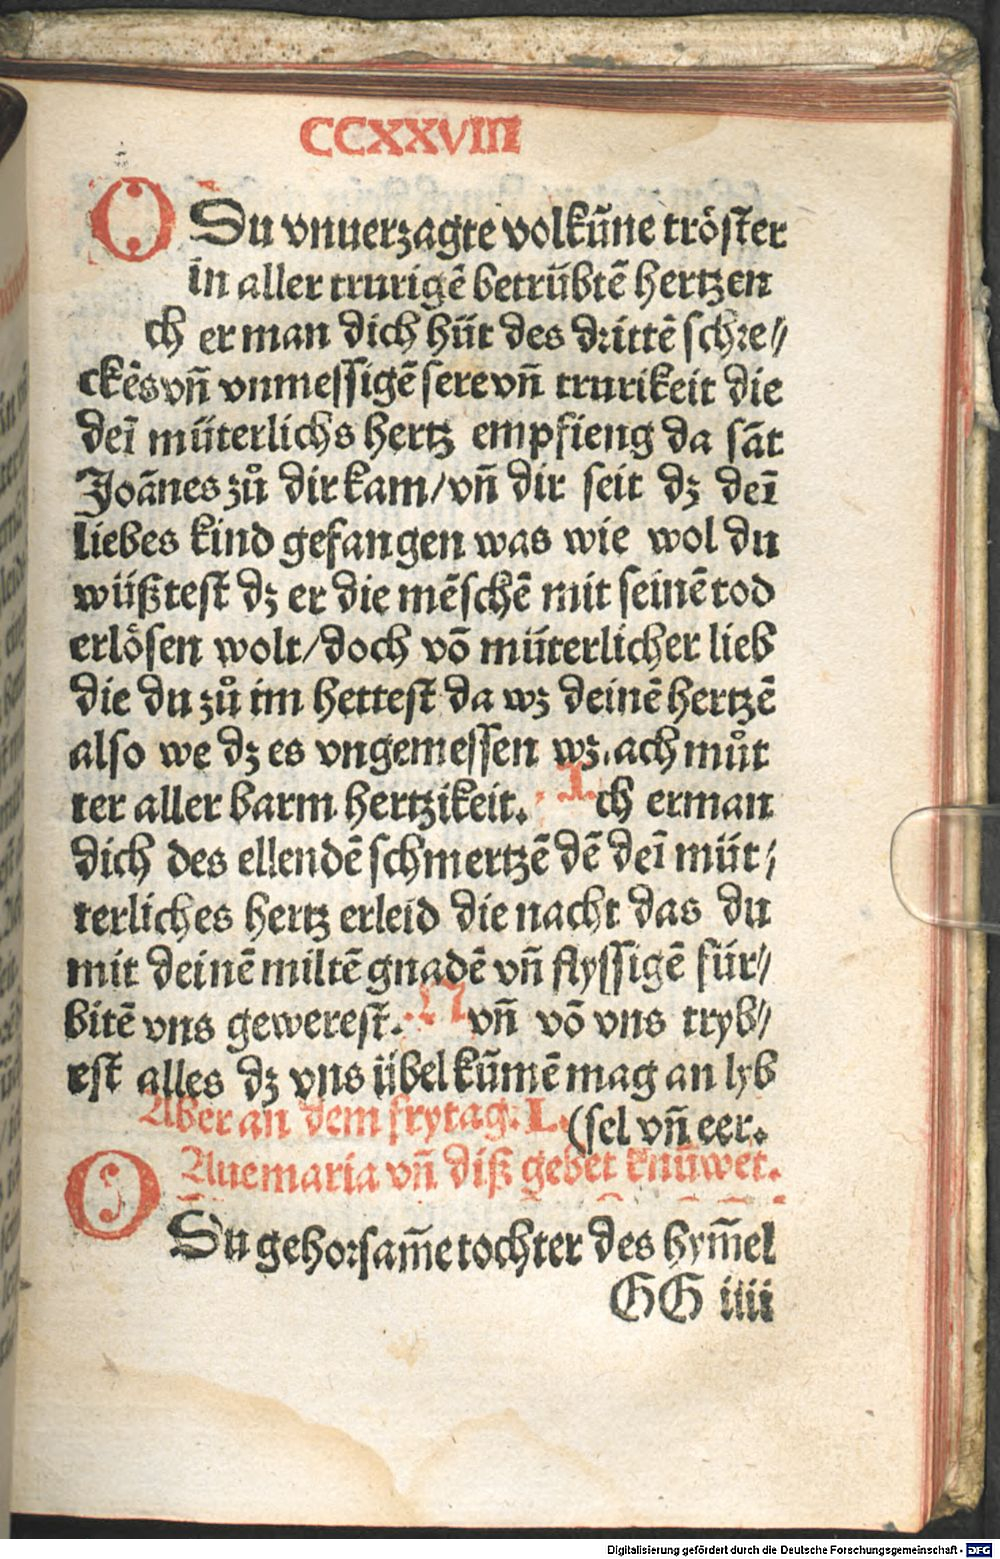 CCXXVIII
O Du vnuerzagte volkũne tröster
in aller trurigē betrübtē hertzen
ch er man dich hüt des drittē schre//
ckēs vñ vnmessigē sere vñ trurikeit die
deī müterlichs hertz empfieng da sāt
Joānes zů dir kam/vñ dir seit dʒ deī
liebes kind gefangen was wie wol du
wüßtest dʒ er die mēschē mit seinē tod
erlösen wolt/doch vō müterlicher lieb
die du zů im hettest da wʒ deinē hertzē
also we dʒ es vngemessen wʒ.ach můt
ter aller barm hertzikeit. Ich erman
dich des ellendē schmertzē dē deī müt/
terliches hertz erleid die nacht das du
mit deinē miltē gnadē vñ flyssigē für//
bitē vns gewerest. N vñ vō vns tryb//
est alles dʒ vns übel kũmē mag an lyb
Aber an dem frytag. L. (sel vñ eer.
Aue maria vñ diß gebet knũwet.
O Du gehorsam̄e tochter des hym̄el
GG iiii
Digitalisierung gefördert durch die Deutsche Forschungsgemeinschaft - DFG